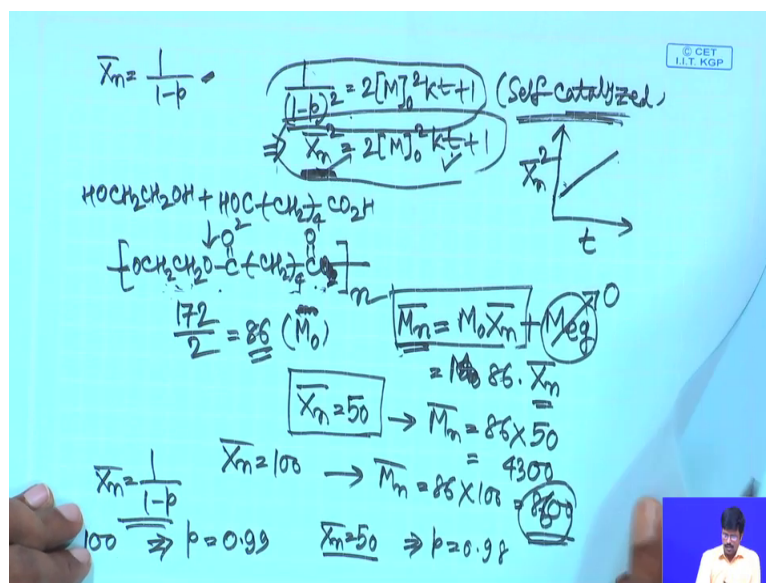 © CET
I.I.T. KGP
X̄n = 1/(1-p)
1/(1-p)² = 2[M]₀²kt+1 (Self catalyzed)
⇒ X̄n² = 2[M]₀²kt+1
X̄n²
t
HOCH₂CH₂OH + HO₂C-(CH₂)₄CO₂H
↓
-[OCH₂CH₂O-C(=O)-(CH₂)₄-C(=O)]-n
172/2 = 86 (M₀)
M̄n = M₀X̄n + Meg → 0
= 86 . X̄n
X̄n = 50 → M̄n = 86×50
= 4300
X̄n = 100 → M̄n = 86×100 = 8600
X̄n = 1/(1-p)
100 ⇒ p = 0.99 X̄n = 50 ⇒ p = 0.98